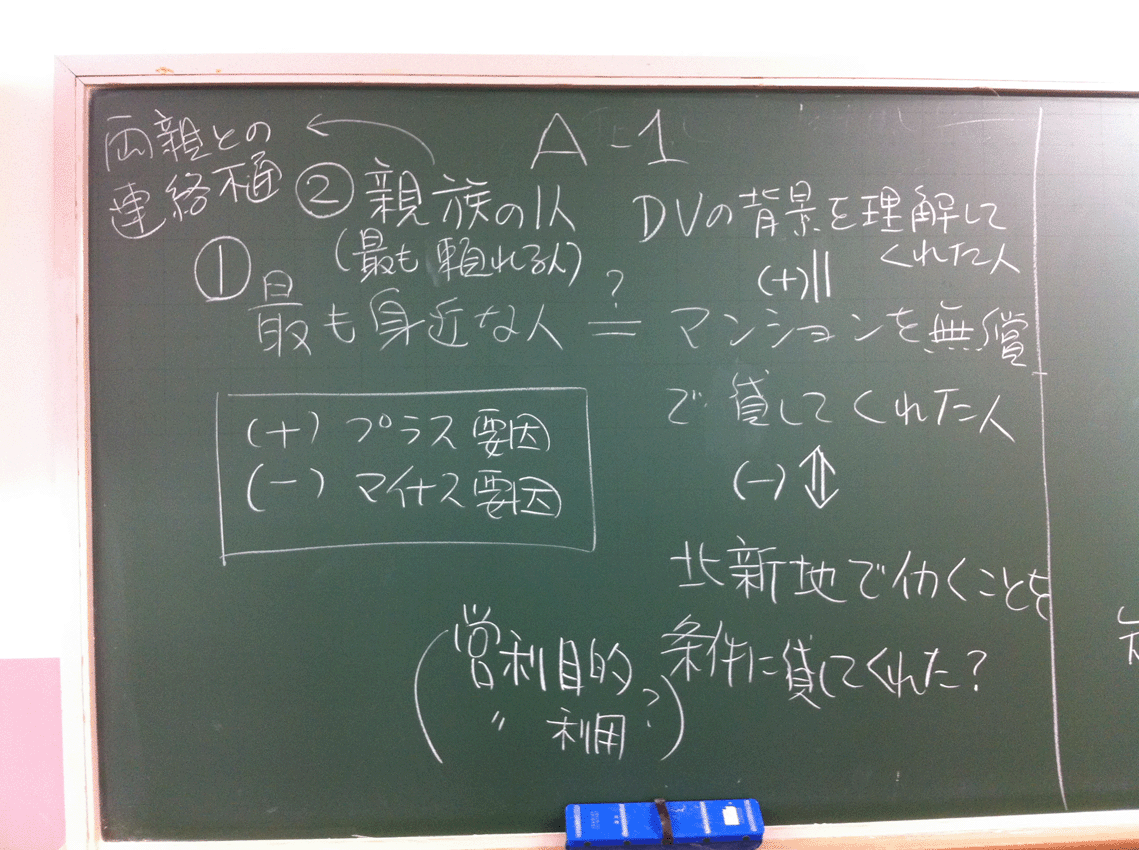 A-1
両親との
連絡不通
② 親族の1人
(最も頼れる人)
① 最も身近な人 ?=
DVの背景を理解して
くれた人
(+) ||
マンションを無償
で貸してくれた人
(-) ⇕
北新地で仂くことを
条件に貸してくれた?
(営利目的
〃 利用?)
(+) プラス要因
(-) マイナス要因